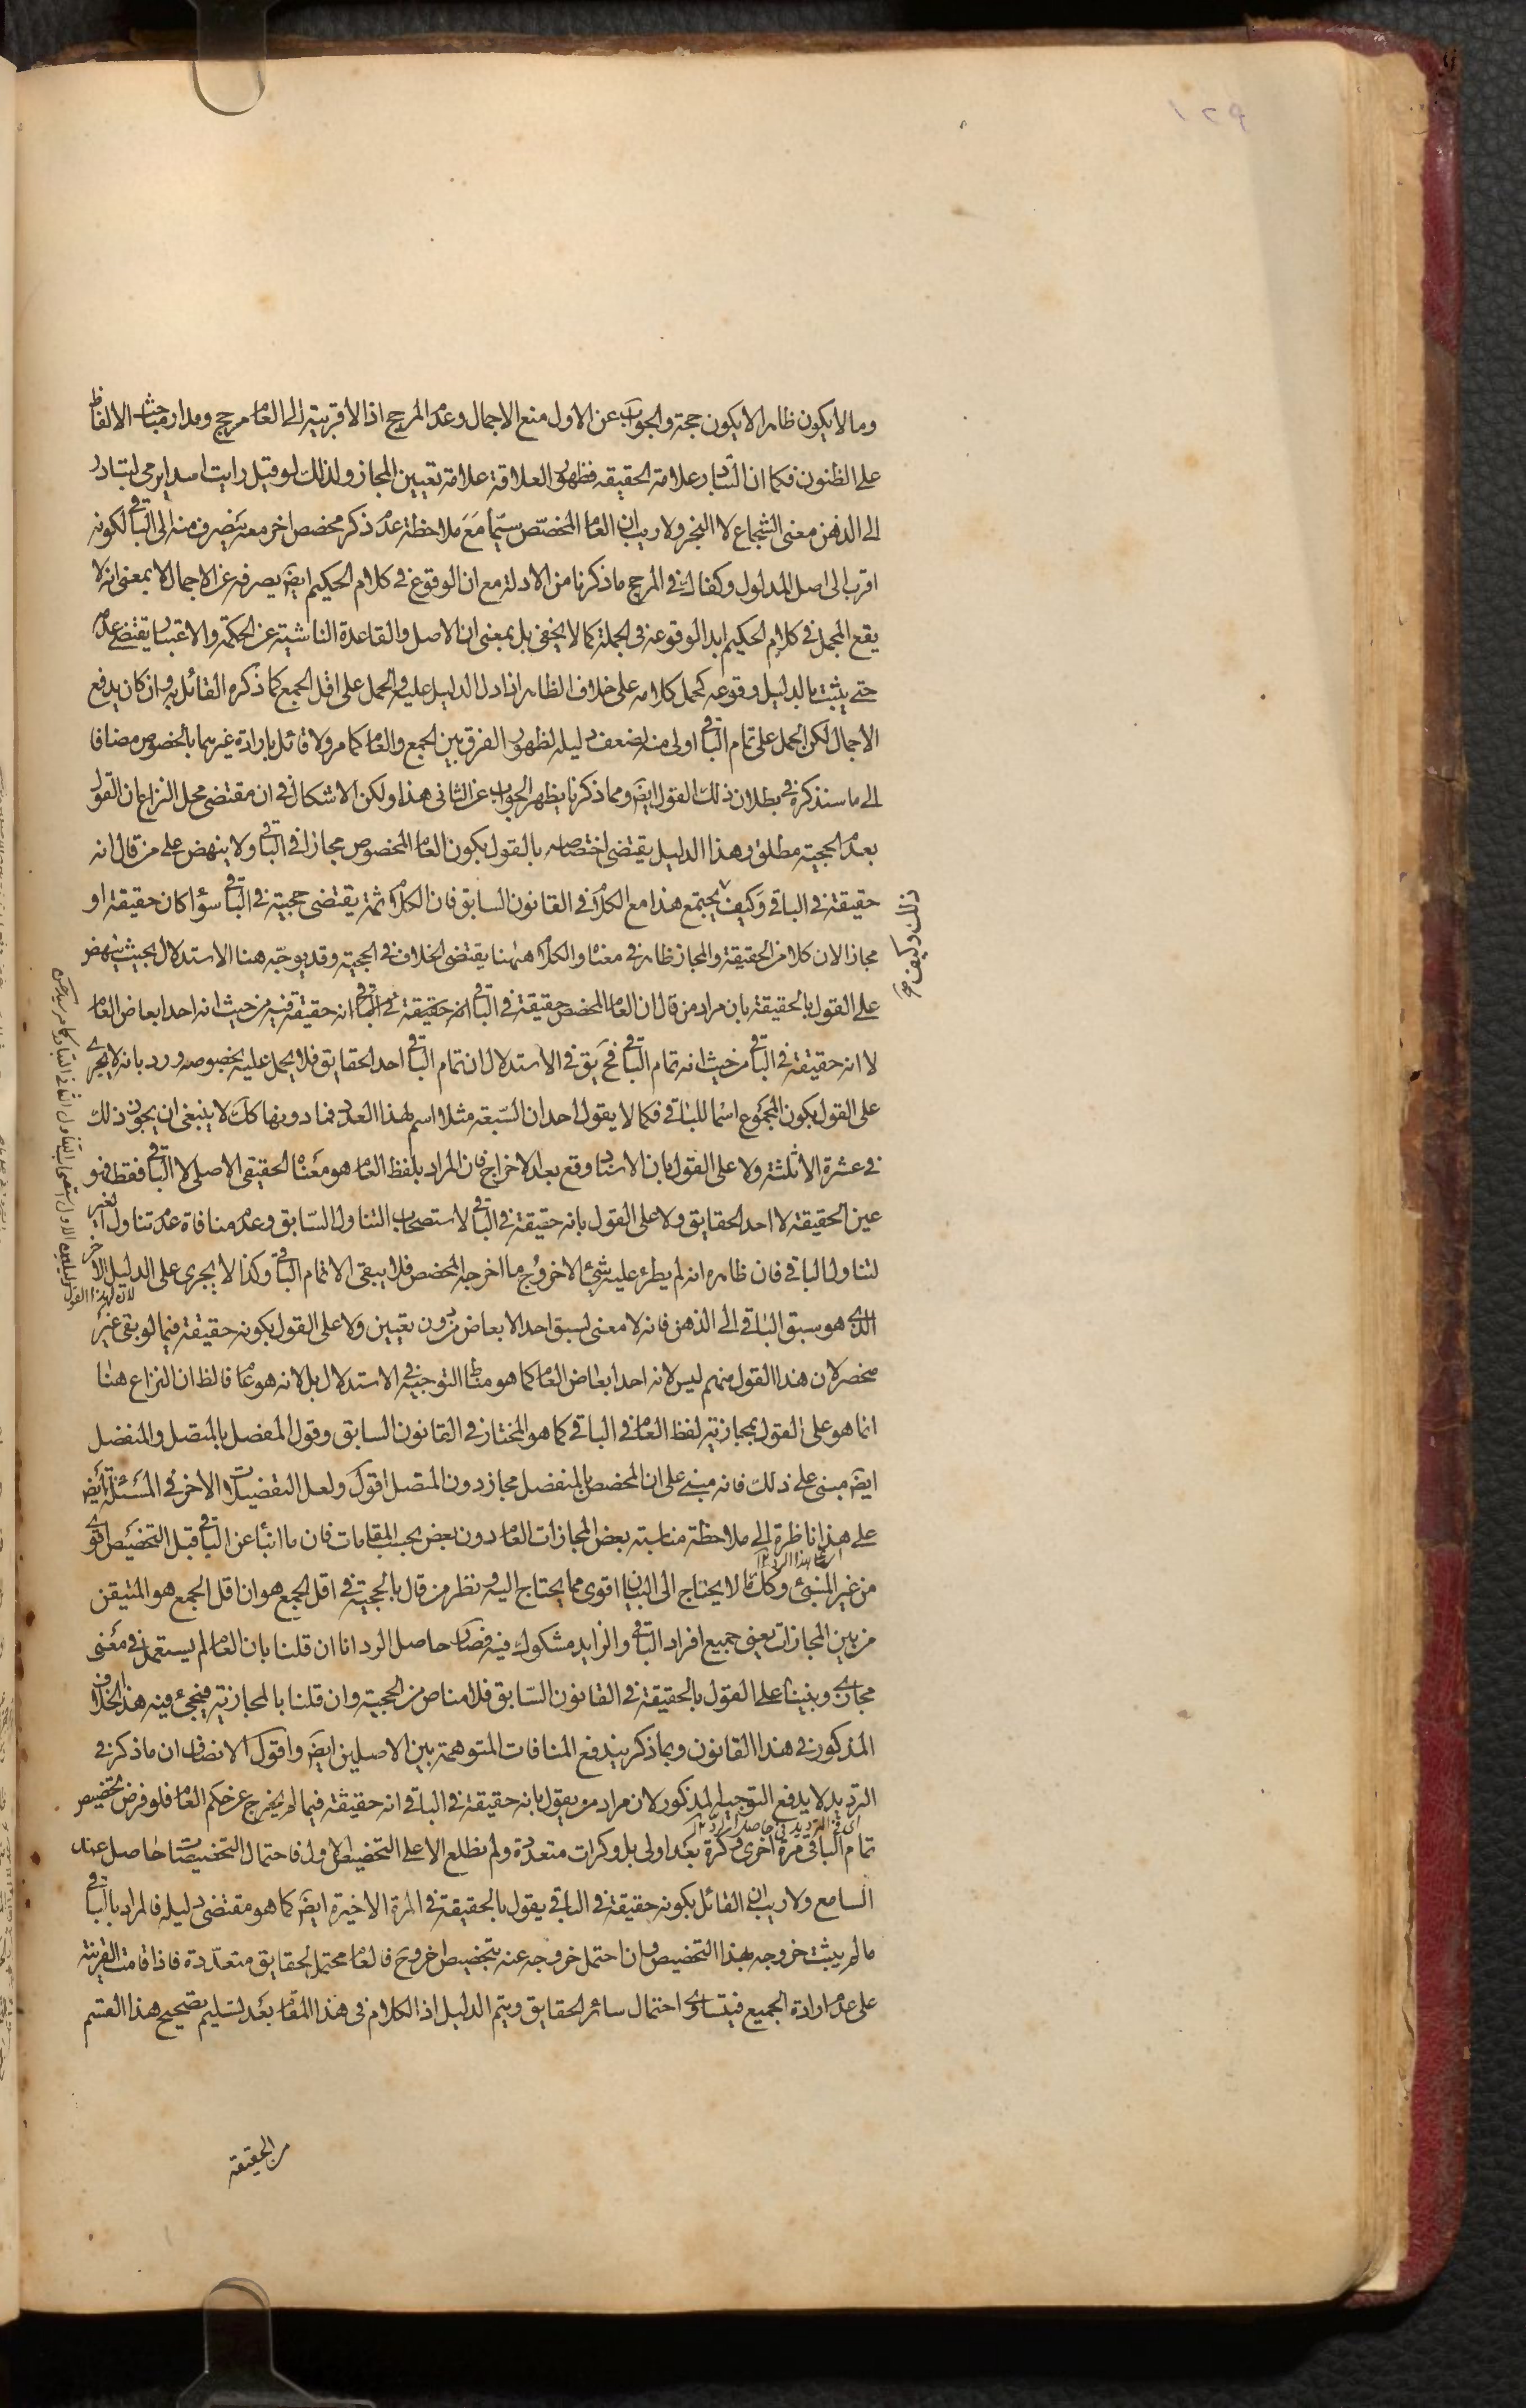 وما لا يكون ظاهرا لا يكون حجة والجواب عن الاول منع الاجمال وعدم المرجح اذ الاقربية الى العام مرجح ومدار مباحث الالفاظ
على الظنون فكما ان التبادر علامة الحقيقة فظهور العلاقة علامة تعيين المجاز ولذلك لو قيل رايت اسدا يرمى لتبادر
الى الذهن معنى الشجاع لا البخر ولا ريب ان العام المخصّص سيّما مَعَ ملاحظة عدم ذكر مخصص اخر معه ينصرف منه الى الباقى لكونه
اقرب الى اصل المدلول وكفاك فى المرجح ما ذكرنا من الادلة مع ان الوقوع فى كلام الحكيم ايضَ يصرفه عن الاجمال لا بمعنى انه لا
يقع المجمل فى كلام الحكيم ابدا لوقوعه فى الجملة كما لا يخفى بل بمعنى ان الاصل والقاعدة الناشئية عن الحكمة والاعتبار يقتضى عدمه
حتى يثبت بالدليل وقوعه كحمل كلامه على خلاف الظاهر اذا دل الدليل عليه والحمل على اقل الجمع كما ذكره القائل به وان كان يدفع
الاجمال لكن الحمل على تمام الباقى اولى منه لضعف دليله لظهور الفرق بين الجمع والعام كما مر ولا قائل بارادة غيرهما بالخصوص مضافا
الى ما سنذكره فى بطلان ذلك القول ايضَ ومما ذكرنا يظهر الجواب عن الثانى هذا ولكن الاشكال فى ان مقتضى محل النزاع ان القول
بعدم الحجية مطلق وهذا الدليل يقتضى اختصاصه بالقول بكون العام المخصوص مجازا فى الباقى ولا ينهض على من قال انه
حقيقة فى الباقى وَكيف يجتمع هذا مع الكلام فى القانون السابق فان الكلام ثمة يقتضى حجية فى الباقى سواء كان حقيقة او
مجازا لان كلا من الحقيقة والمجاز ظاهر فى معناه والكلام ههنا يقتضى الخلاف فى الحجية وقد يوجّه هنا الاستدلال بحيث ينهض
على القول بالحقيقة بان مراد من قال ان العام المخصص حقيقة فى الباقى انه حقيقة فى الباقى انه حقيقة فيه من حيث انه احد ابعاض العام
لا انه حقيقة فى الباقى من حيث انه تمام الباقى فحَ يق فى الاستدلال ان تمام الباقى احد الحقايق فلا يحمل عليه بخصوصه ورد بانه لا يجرى
على القول بكون المجموع اسْما للباقى فكما لا يقول احد ان السّبعة مثلا اسم لهذا العدد فما دونها كك لا ينبغى ان يجوز ذلك
فى عشرة الا ثلثة ولا على القول بان الاسناد وقع بعد الاخراج فان المراد بلفظ العام هو مَعْناه الحقيقى الاصلى لا الباقى فقط فهو
عين الحقيقة لا احد الحقايق ولا على القول بانه حقيقة فى الباقى لاستصحاب التناول السّابق وعدم منافاة عدم تناول الغير
لتناول الباقى فان ظاهره انه لم يطرء عليه شئ الا خروج ما اخرجه المخصص فلا يبقى الا تمام الباقى وكذا لا يجرى على الدليل الاخر
الذى هو سبق الباقى الى الذهن فانه لا معنى لسبق احد الابعاض من دون تعيين ولا على القول بكونه حقيقة فيما لو بقى غير
منحصر لان هذا القول منهم ليس لانه احد ابعاض العام كما هو مناط التوجيه فى الاستدلال بل لانه هو عام فالظ ان النزاع هنا
انما هو على القول بمجازية لفظ العام فى الباقى كما هو المختار فى القانون السابق وقول المفصل بالمتصل والمنفصل
ايضَ مبنى على ذلك فانه مبنى على ان المخصص بالمنفصل مجاز دون المتصل اقول ولعل التفصيلات الاخر فى المسَئلة ايضَ
على هذا ناظرة الى ملاحظة مناسبة بعض المجازات العام دون بعض بحسب المقامات فان ما انبأ عن الباقى قبل التخصيص اقوى
من غير المنبئ وكك ما لا يحتاج الى البيان اقوى مما يحتاج اليه ونظر من قال بالحجية فى اقل الجمع هو ان اقل الجمع هو المتيقن
من بين المجازات يعنى جميع افراد الباقى والزايد مشكوك فيه فصار حاصل الرد انا ان قلنا بان العام لم يستعمل فى معْنى
مجازى وبنينا على القول بالحقيقة فى القانون السّابق فلا مناص من الحجية وان قلنا بالمجازية فيجئ فيه هذا الخلاف
المذكور فى هذا القانون وبما ذكر يندفع المنافات المتوهمة بين الاصلين ايضَ واقول الانصاف ان ما ذكر فى
الترديد لا يدفع التوجيه المذكور لان مراد من يقول بانه حقيقة فى الباقى انه حقيقة فيما لم يخرج عن حكم العام فلو فرض تخصيص
اى فى الترديد فى حاصل الرد
تمام الباقى مرة اخرى وكرة بعَد اولى بل وكرات متعددة ولم نطلع الا على التخصيص الاول فاحتمال التخصيصات حاصل عند
السامع ولا ريب ان القائل بكونه حقيقة فى الباقى يقول بالحقيقة فى المرة الاخيرة ايضَ كما هو مقتضى دليله فالمراد بالباقى
ما لم يثبت خروجه بهذا التخصيص وان احتمل خروجه عنه بتخصيص اخر وحَ فالعام محتمل لحقايق متعدّدة فاذا قامت القرينة
على عدم ارادة الجميع فيتساوى احتمال سائر الحقايق ويتم الدليل اذ الكلام فى هذا المقام بَعْد تسليم تصحيح هذا القسم
من الحقيقة